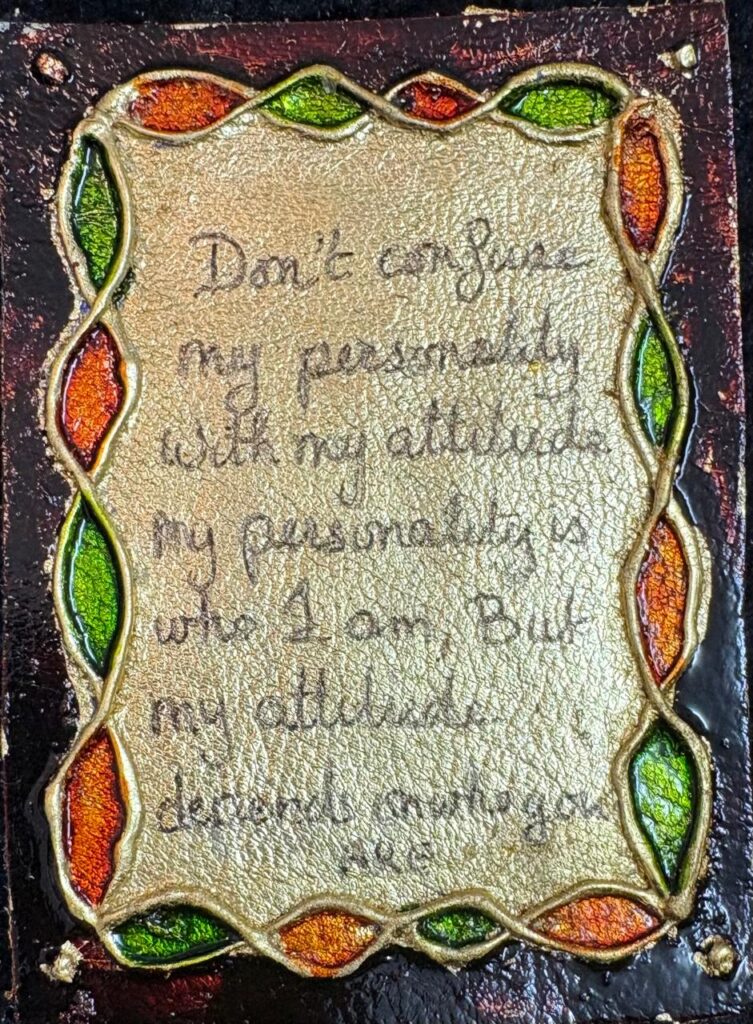 Don't confuse
my personality
with my attitude
my personality is
who I am, But
my attitude
depends on who you
ARE